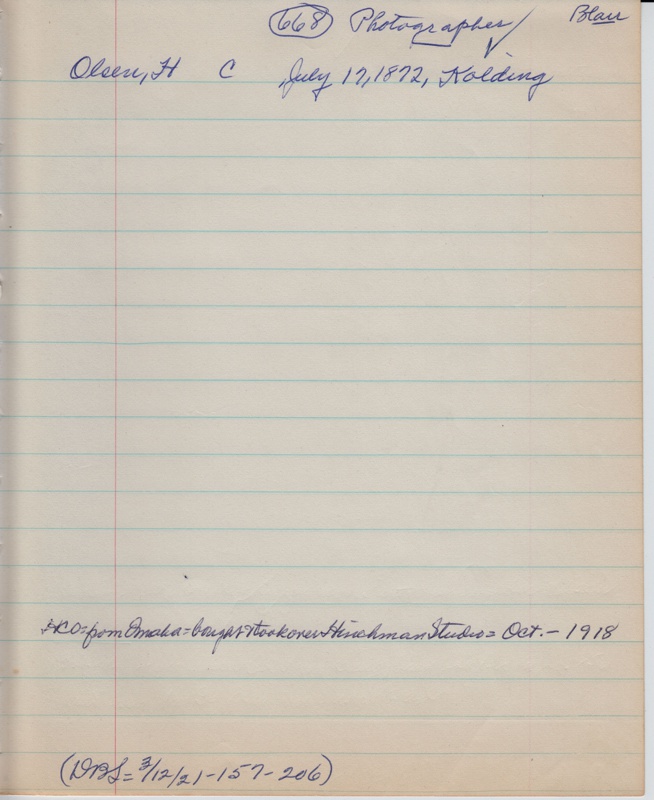 668 Photographer Blair
Olsen, H C July 17, 1872, Kolding
HCO = from Omaha = bought & took over Hinchman Studio = Oct. - 1918
(DBL = 3/12/21-157-206)